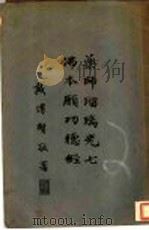 藥師瑠璃光七
佛本願功德經
戴傳賢敬書